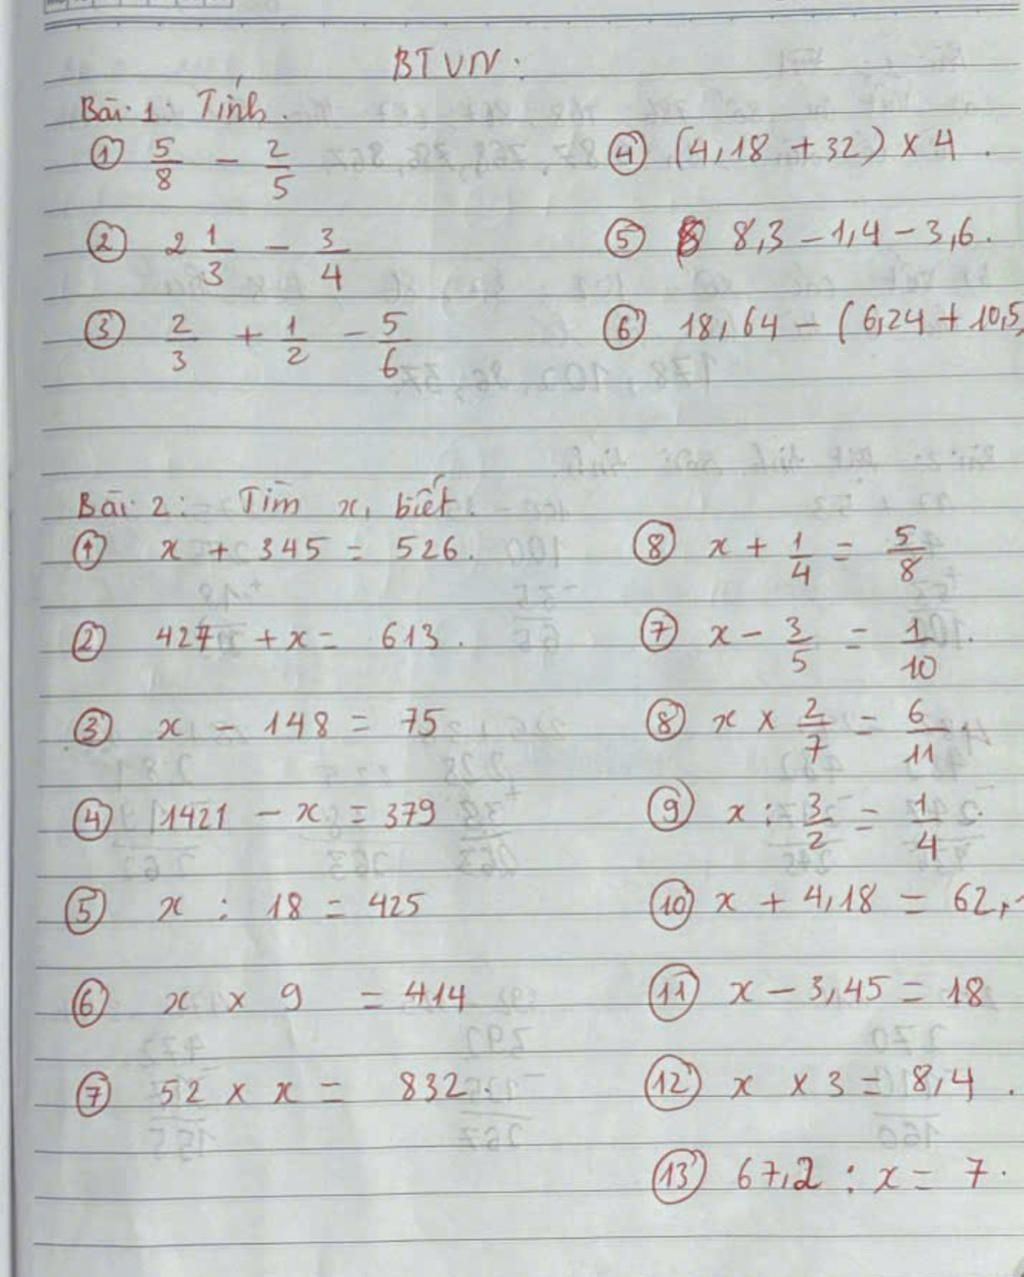 BTVN:
Bài 1: Tính.
① 5/8 - 2/5
② 2 1/3 - 3/4
③ 2/3 + 1/2 - 5/6
④ (4,18 + 32) x 4.
⑤ 8,3 - 1,4 - 3,6.
⑥ 18,64 - (6,24 + 10,5
Bài 2: Tìm x, biết
① x + 345 = 526.
② 427 + x = 613.
③ x - 148 = 75
④ 1421 - x = 379
⑤ x : 18 = 425
⑥ x x 9 = 414
⑦ 52 x x = 832.
⑧ x + 1/4 = 5/8
⑦ x - 3/5 = 1/10.
⑧ x x 2/7 = 6/11
⑨ x : 3/2 = 1/4.
⑩ x + 4,18 = 62,
⑪ x - 3,45 = 18
⑫ x x 3 = 8,4.
⑬ 67,2 : x = 7.